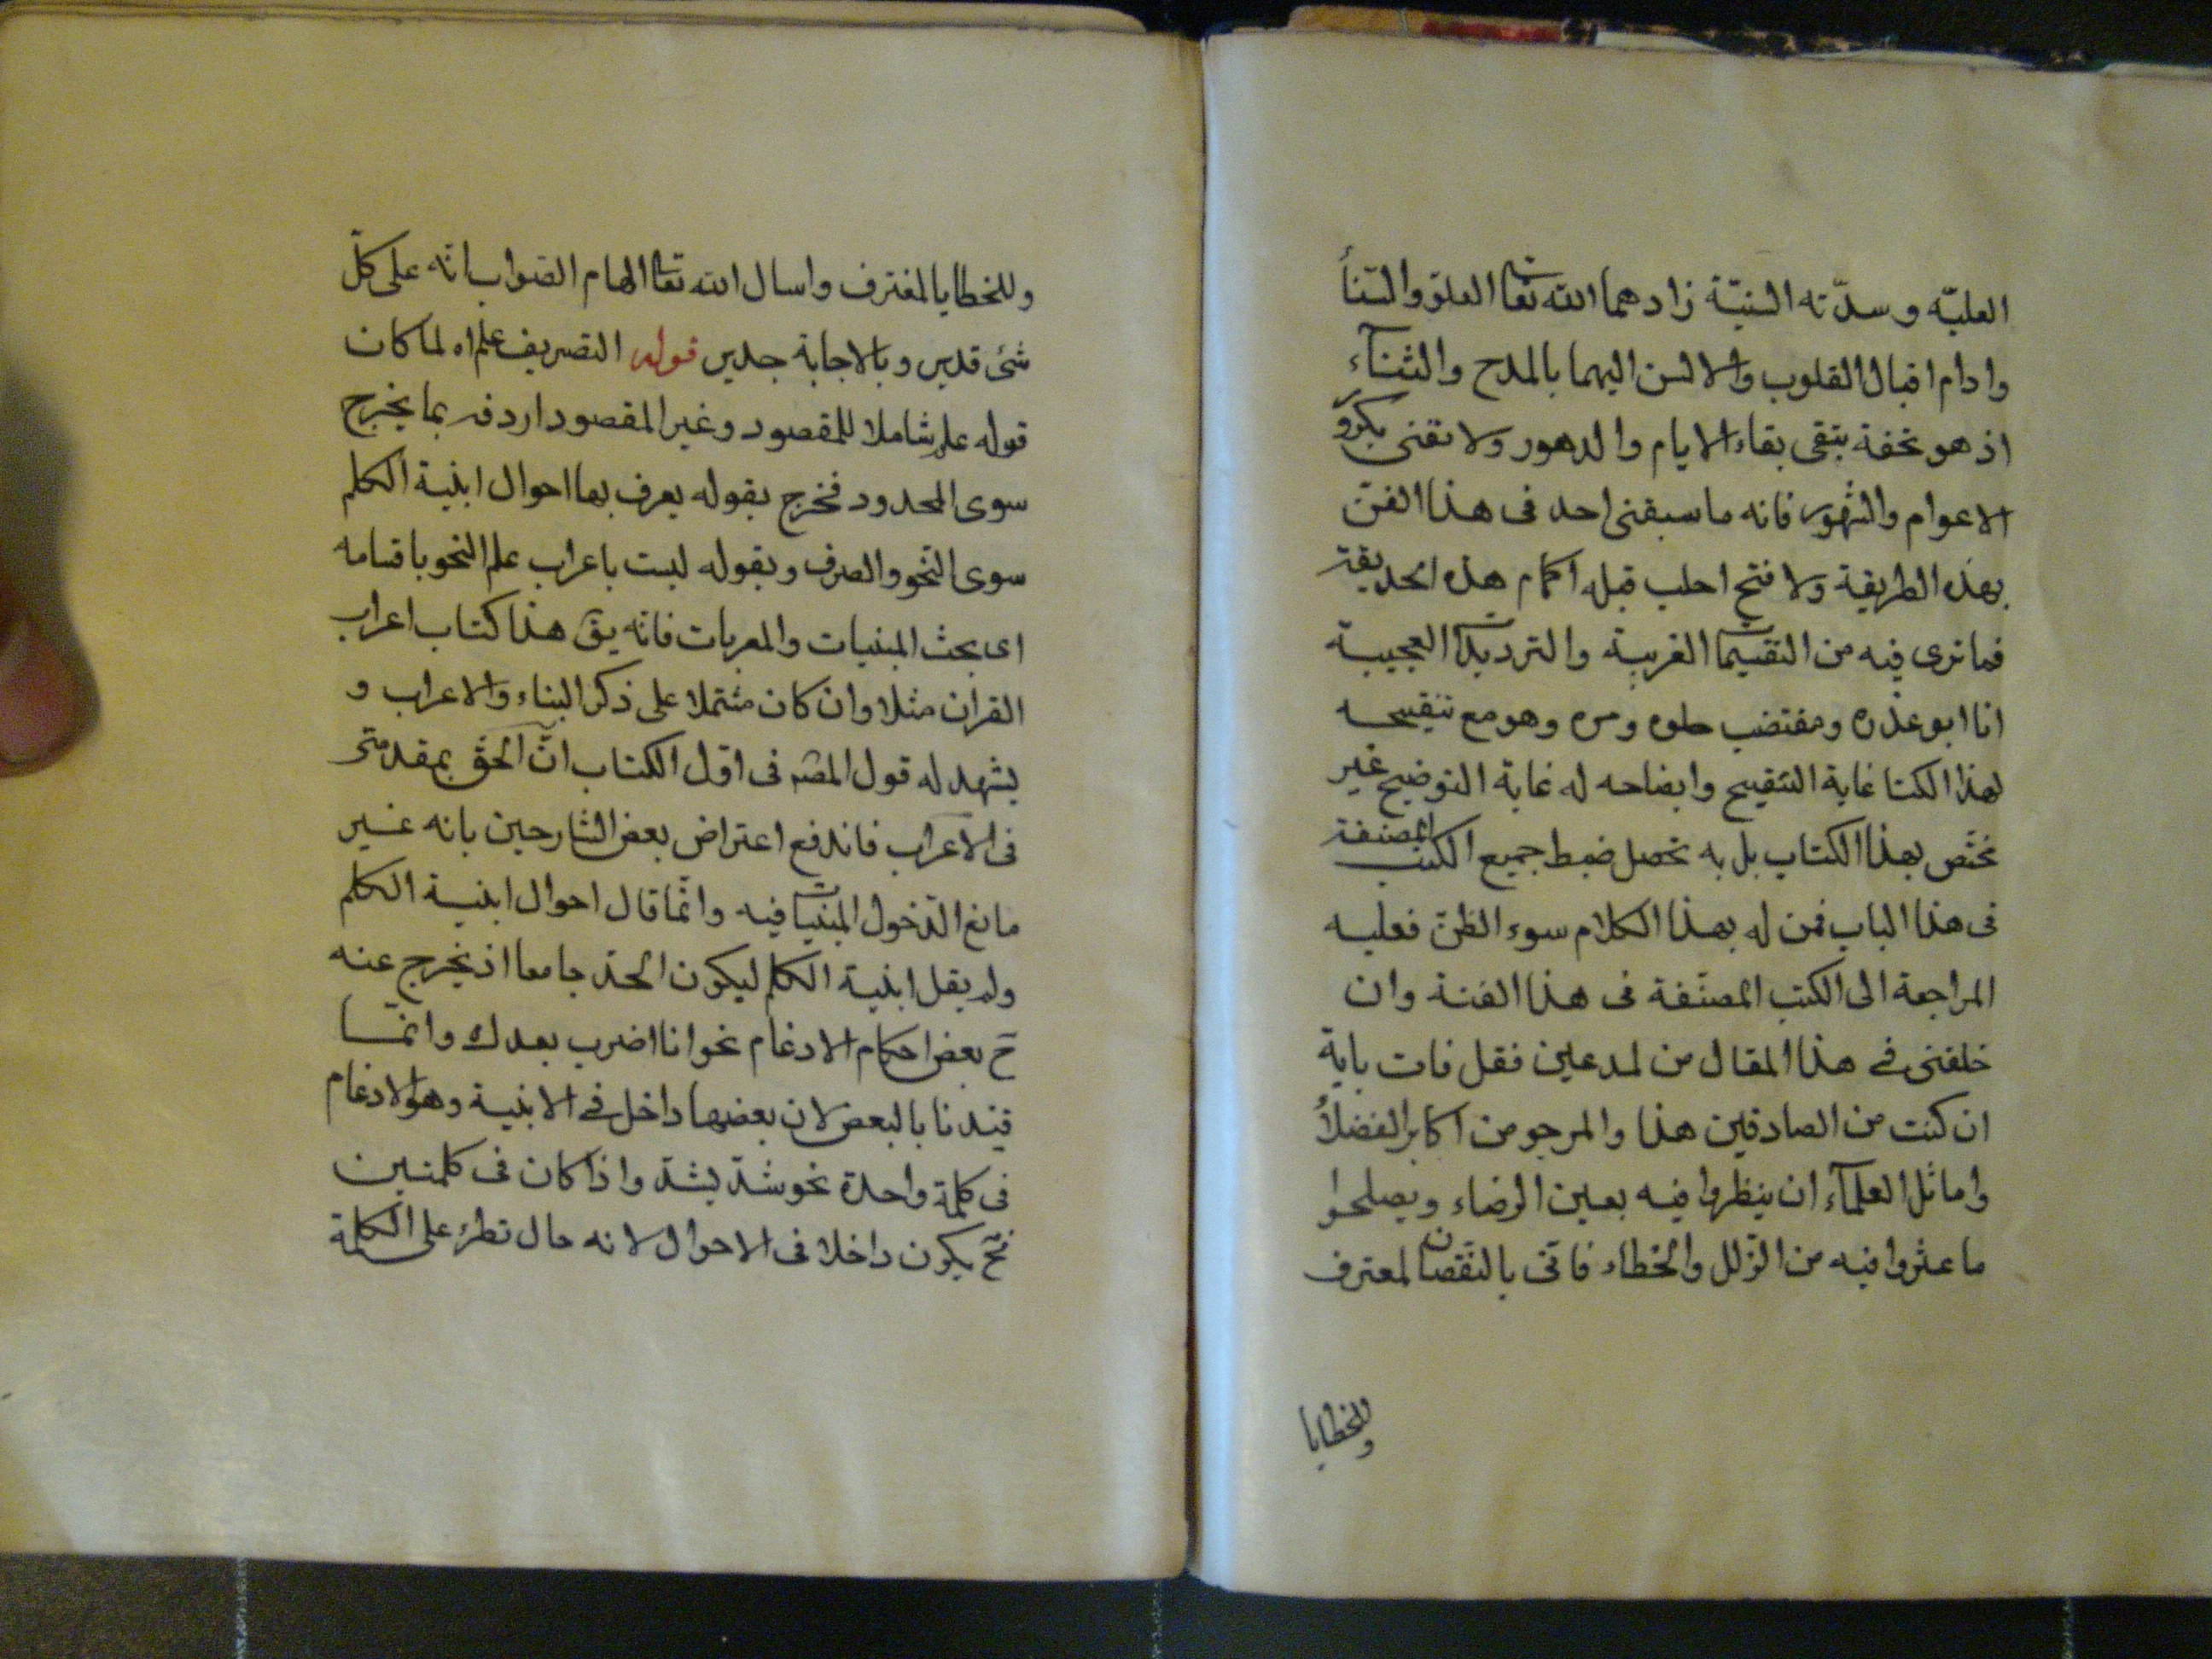 العليّه وسدّته السنيّة زادهما الله تعا العلوّ والسّنأ
وادام اقبال القلوب والالسن اليهما بالمدح والثنآء
اذ هو تحفة يبقى بقاء الايام والدهور ولا تفنى بكرو
الاعوام والشهور فانه ما سبقنى احد فى هذا الفنّ
بهذه الطريقة ولا فتح احلب قبله اكمام هذه الحديقة
فما ترى فيه من التقسيمات الغريبة والترديدات العجيبة
انا ابو عذره ومقتضب حلوه ومره وهو مع تنقيحه
لهذا الكتا غاية التنقيح وايضاحه له غاية التوضيح غير
مختص بهذا الكتاب بل به تحصل ضبط جميع الكتب المصنفة
فى هذا الباب فمن له بهذا الكلام سوء الظنّ فعليه
المراجعة الى الكتب المصنّفة فى هذا الفنة وان
خلفنى فى هذا المقال من لمدعين فقل فات باية
ان كنت من الصادقين هذا والمرجو من اكابر الفضلأ
واماثل العلمآء ان ينظروا فيه بعين الرضاء ويصلحوا
ما عثروا فيه من الزّلل والخطاء فانى بالنّقصان لمعترف
وللخطايا
وللخطايا لمغترف واسال الله تعا الهام الصّواب انّه على كلّ
شئ قدير وبالاجابة جدير قوله التصريف علم اه لما كان
قوله علم شاملا للمقصود وغير المقصود اردفه بما يخرج
سوى المحدود فخرج بقوله يعرف بها احوال ابنية الكلم
سوى النّحو والصرف وبقوله ليست باعراب علم النحو باقسامه
اى بحث المبنيات والمعربات فانّه يقٓ هذا كتاب اعراب
القران مثلا وان كان مشتملا على ذكر البناء والاعراب و
يشهد له قول المصٓ فى اوّل الكتاب انّ الحق بمقدمتى
فى الاعراب فاندفع اعتراض بعض الشارحين بانه غير
مانع الدّخول المبنيات فيه وانّما قال احوال ابنية الكلم
ولم يقل ابنية الكلم ليكون الحدّ جامعا اذ يخرج عنه
حٓ بعض احكام الادغام نحو انا اضرب بعدك وانمّا
قيّدنا بالبعض لان بعضها داخل فى الابنية وهو الادغام
فى كلمة واحدة نحو شدّ يشدّ واذا كان فى كلمتين
فحٓ يكون داخلا فى الاحوال لانه حال تطرئ على الكلمة